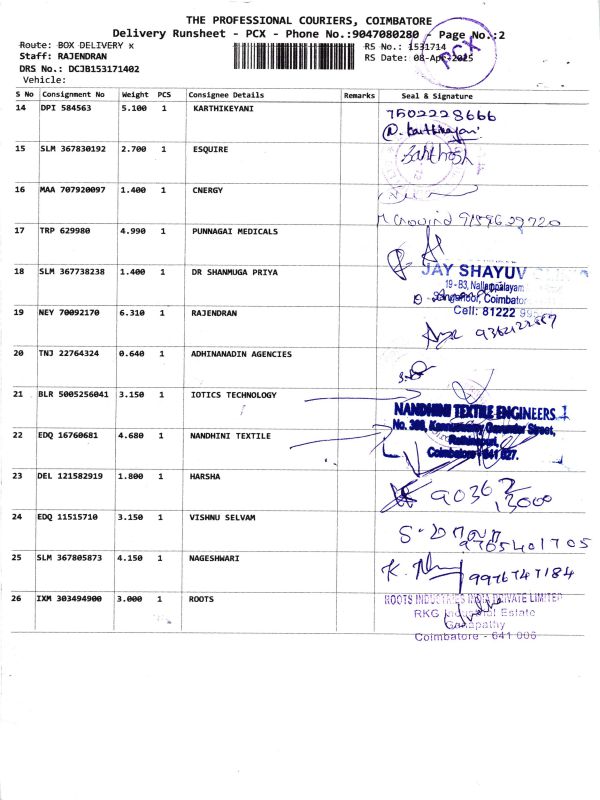 THE PROFESSIONAL COURIERS, COIMBATORE
Delivery Runsheet - PCX - Phone No.:9047080280 - Page No.:2
PCX
Route: BOX DELIVERY x
RS No.: 1531714
Staff: RAJENDRAN
RS Date: 08-Apr-2025
DRS No.: DCJB153171402
Vehicle:
S No Consignment No Weight PCS Consignee Details Remarks Seal & Signature
14 DPI 584563 5.100 1 KARTHIKEYANI
7502228666
15 SLM 367830192 2.700 1 ESQUIRE
Santhosh
16 MAA 707920097 1.400 1 CNERGY
17 TRP 629980 4.990 1 PUNNAGAI MEDICALS
18 SLM 367738238 1.400 1 DR SHANMUGA PRIYA
JAY SHAYUV
19-B3, Nallampalayam
Coimbator
Cell: 81222
19 NEY 70092170 6.310 1 RAJENDRAN
20 TNJ 22764324 0.640 1 ADHINANADIN AGENCIES
21 BLR 5005256041 3.150 1 IOTICS TECHNOLOGY
NANDHINI TEXTILE ENGINEERS
22 EDQ 16760681 4.680 1 NANDHINI TEXTILE
Street,
Coimbatore - 641 027.
23 DEL 121582919 1.800 1 HARSHA
90362
13000
24 EDQ 11515710 3.150 1 VISHNU SELVAM
9765401705
25 SLM 367805873 4.150 1 NAGESHWARI
9976747184
26 IXM 303494900 3.000 1 ROOTS
ROOTS INDUSTRIES INDIA PRIVATE LIMITED
RKG Industrial Estate
Ganapathy
Coimbatore - 641 006